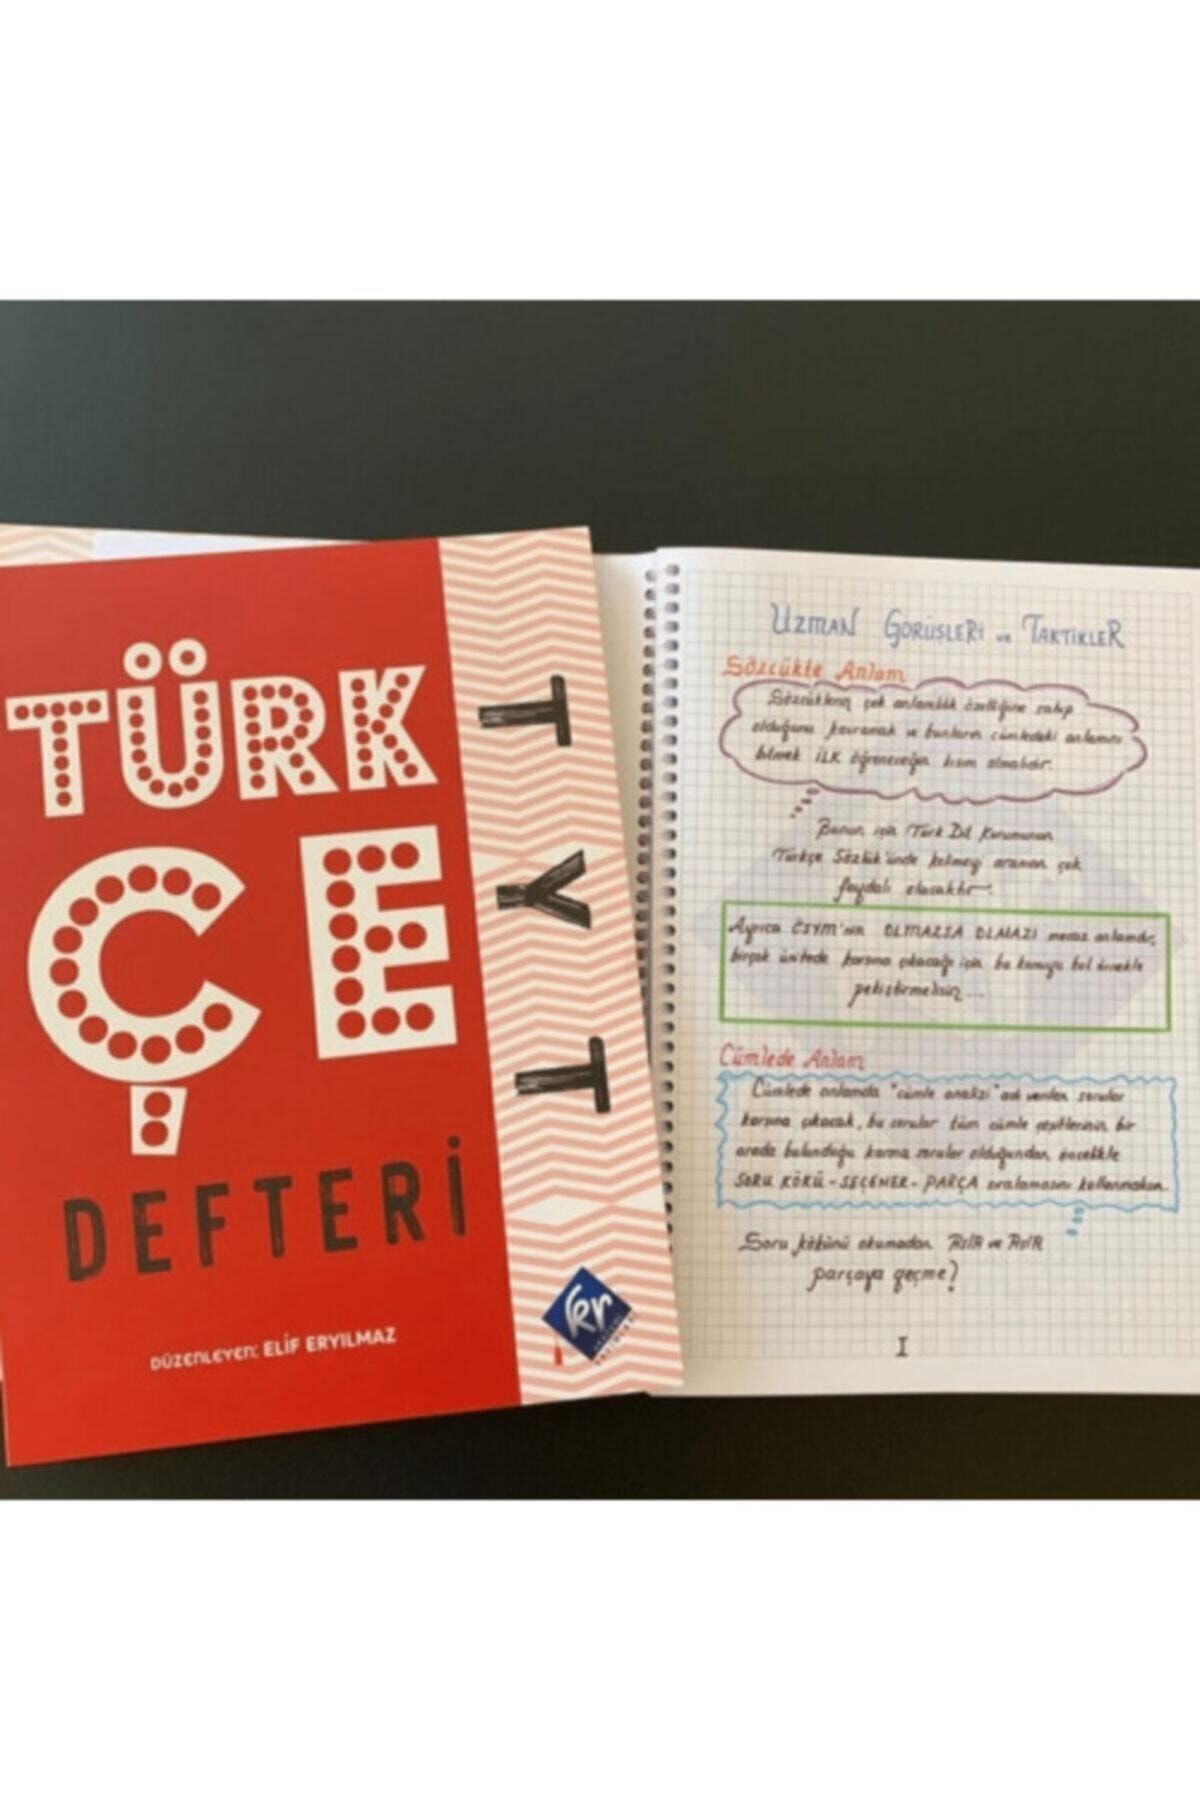 TÜRK
ÇE
DEFTERİ
DÜZENLEYEN: ELİF ERYILMAZ
TYT
kr
UZMAN GÖRÜŞLERİ ve TAKTİKLER
Sözcükte Anlam
Sözcüklerin çok anlamlılık özelliğine sahip
olduğunu kavramak ve bunların cümledeki anlamını
bilmek İLK öğreneceğin kısım olmalıdır.
Bunun için Türk Dil Kurumunun
Türkçe Sözlük'ünde kelimeyi araman çok
faydalı olacaktır.
Ayrıca ÖSYM'nin OLMAZSA OLMAZI mecaz anlamdır,
birçok ünitede karşına çıkacağı için bu konuyu bol örnekle
pekiştirmelisin...
Cümlede Anlam
Cümlede anlamda "cümle analizi" adı verilen sorular
karşına çıkacak, bu sorular tüm cümle çeşitlerinin bir
arada bulunduğu karma sorular olduğundan öncelikle
SORU KÖKÜ - SEÇENEK - PARÇA sıralamasını kullanmalısın.
Soru kökünü okumadan ve
parçaya geçme!
I